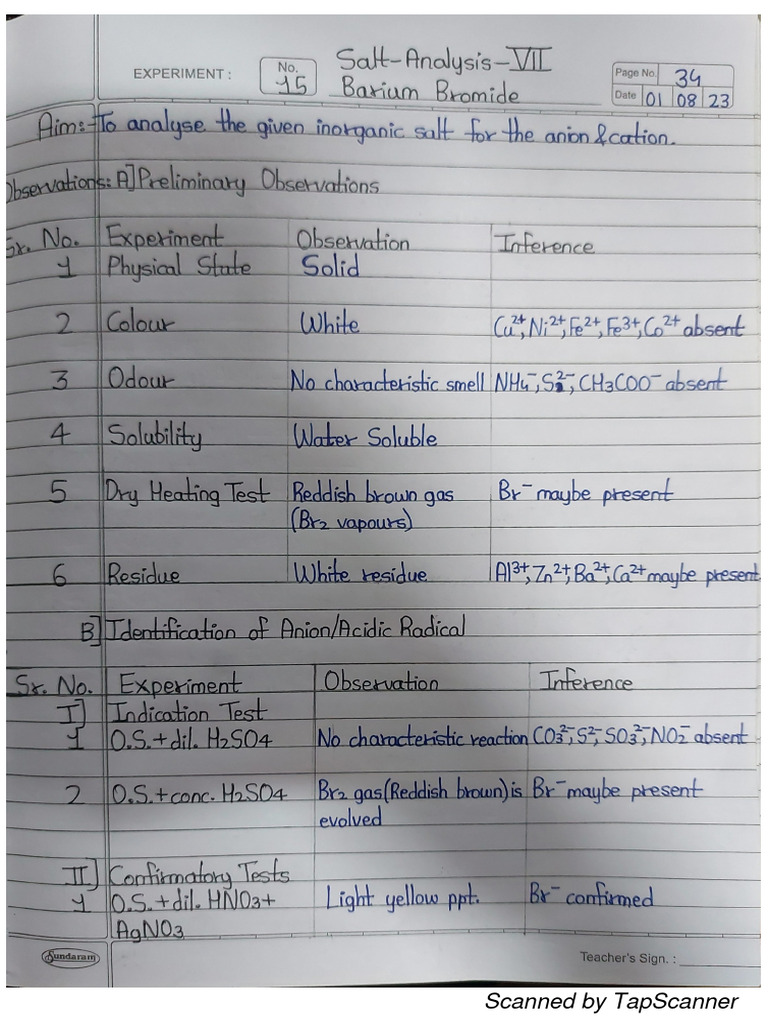 EXPERIMENT : No. 15 Salt-Analysis-VII Barium Bromide Page No. 34
Date 01 08 23
Aim:-To analyse the given inorganic salt for the anion & cation.
Observations: A] Preliminary Observations
Sr. No. Experiment Observation Inference
1 Physical State Solid
2 Colour White Cu²⁺, Ni²⁺, Fe²⁺, Fe³⁺, Co²⁺ absent
3 Odour No characteristic smell NH₄⁻, S²⁻, CH₃COO⁻ absent
4 Solubility Water Soluble
5 Dry Heating Test Reddish brown gas Br⁻ maybe present
(Br₂ vapours)
6 Residue White residue Al³⁺, Zn²⁺, Ba²⁺, Ca²⁺ maybe present
B] Identification of Anion/Acidic Radical
Sr. No. Experiment Observation Inference
I] Indication Test
1 O.S.+dil. H₂SO₄ No characteristic reaction CO₃²⁻, S²⁻, SO₃²⁻, NO₂⁻ absent
2 O.S.+conc. H₂SO₄ Br₂ gas (Reddish brown) is Br⁻ maybe present
evolved
II] Confirmatory Tests
1 O.S.+dil. HNO₃+ Light yellow ppt. Br⁻ confirmed
AgNO₃
Sundaram Teacher's Sign. :
Scanned by TapScanner